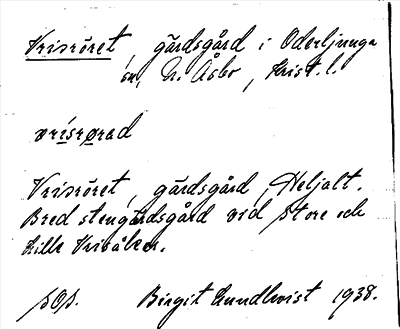 Vrisröret, gärdsgård i Oderljunga
sn, N. Åsbo, Krist. l.
vrisrørad
Vrisröret, gärdsgård, Heljalt.
Bred stengärdsgård vid store och
lille Vrisåker.
sOp. Birgit Lundkvist 1938.